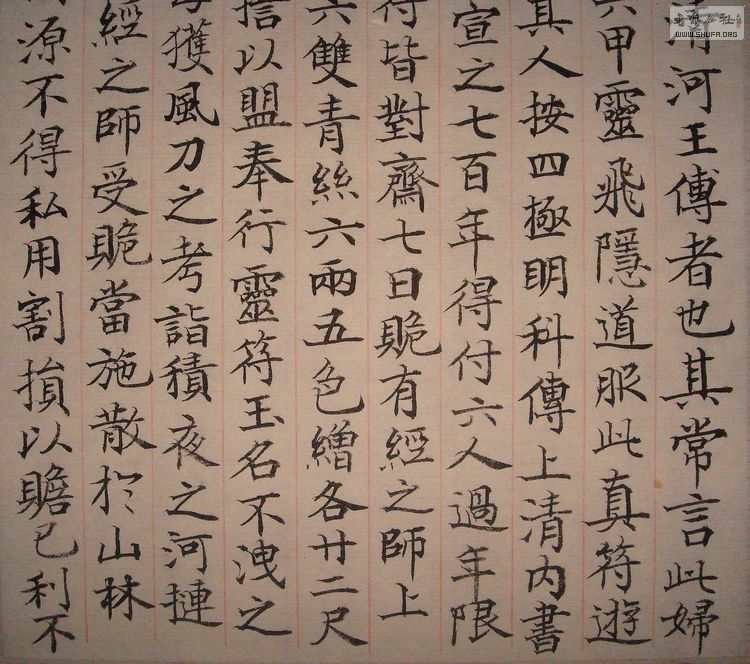 清河王傳者也其常言此婦
六甲靈飛隱道服此真符遊
真人按四極明科傳上清內書
宣之七百年得付六人過年限
付皆對齋七日賝有經之師上
六雙青絲六兩五色繒各廿二尺
以盟奉行靈符玉名不洩之
獲風刀之考詣積夜之河摙
經之師受賝當施散於山林
源不得私用割損以贍己利不
WWW.SHUFA.ORG